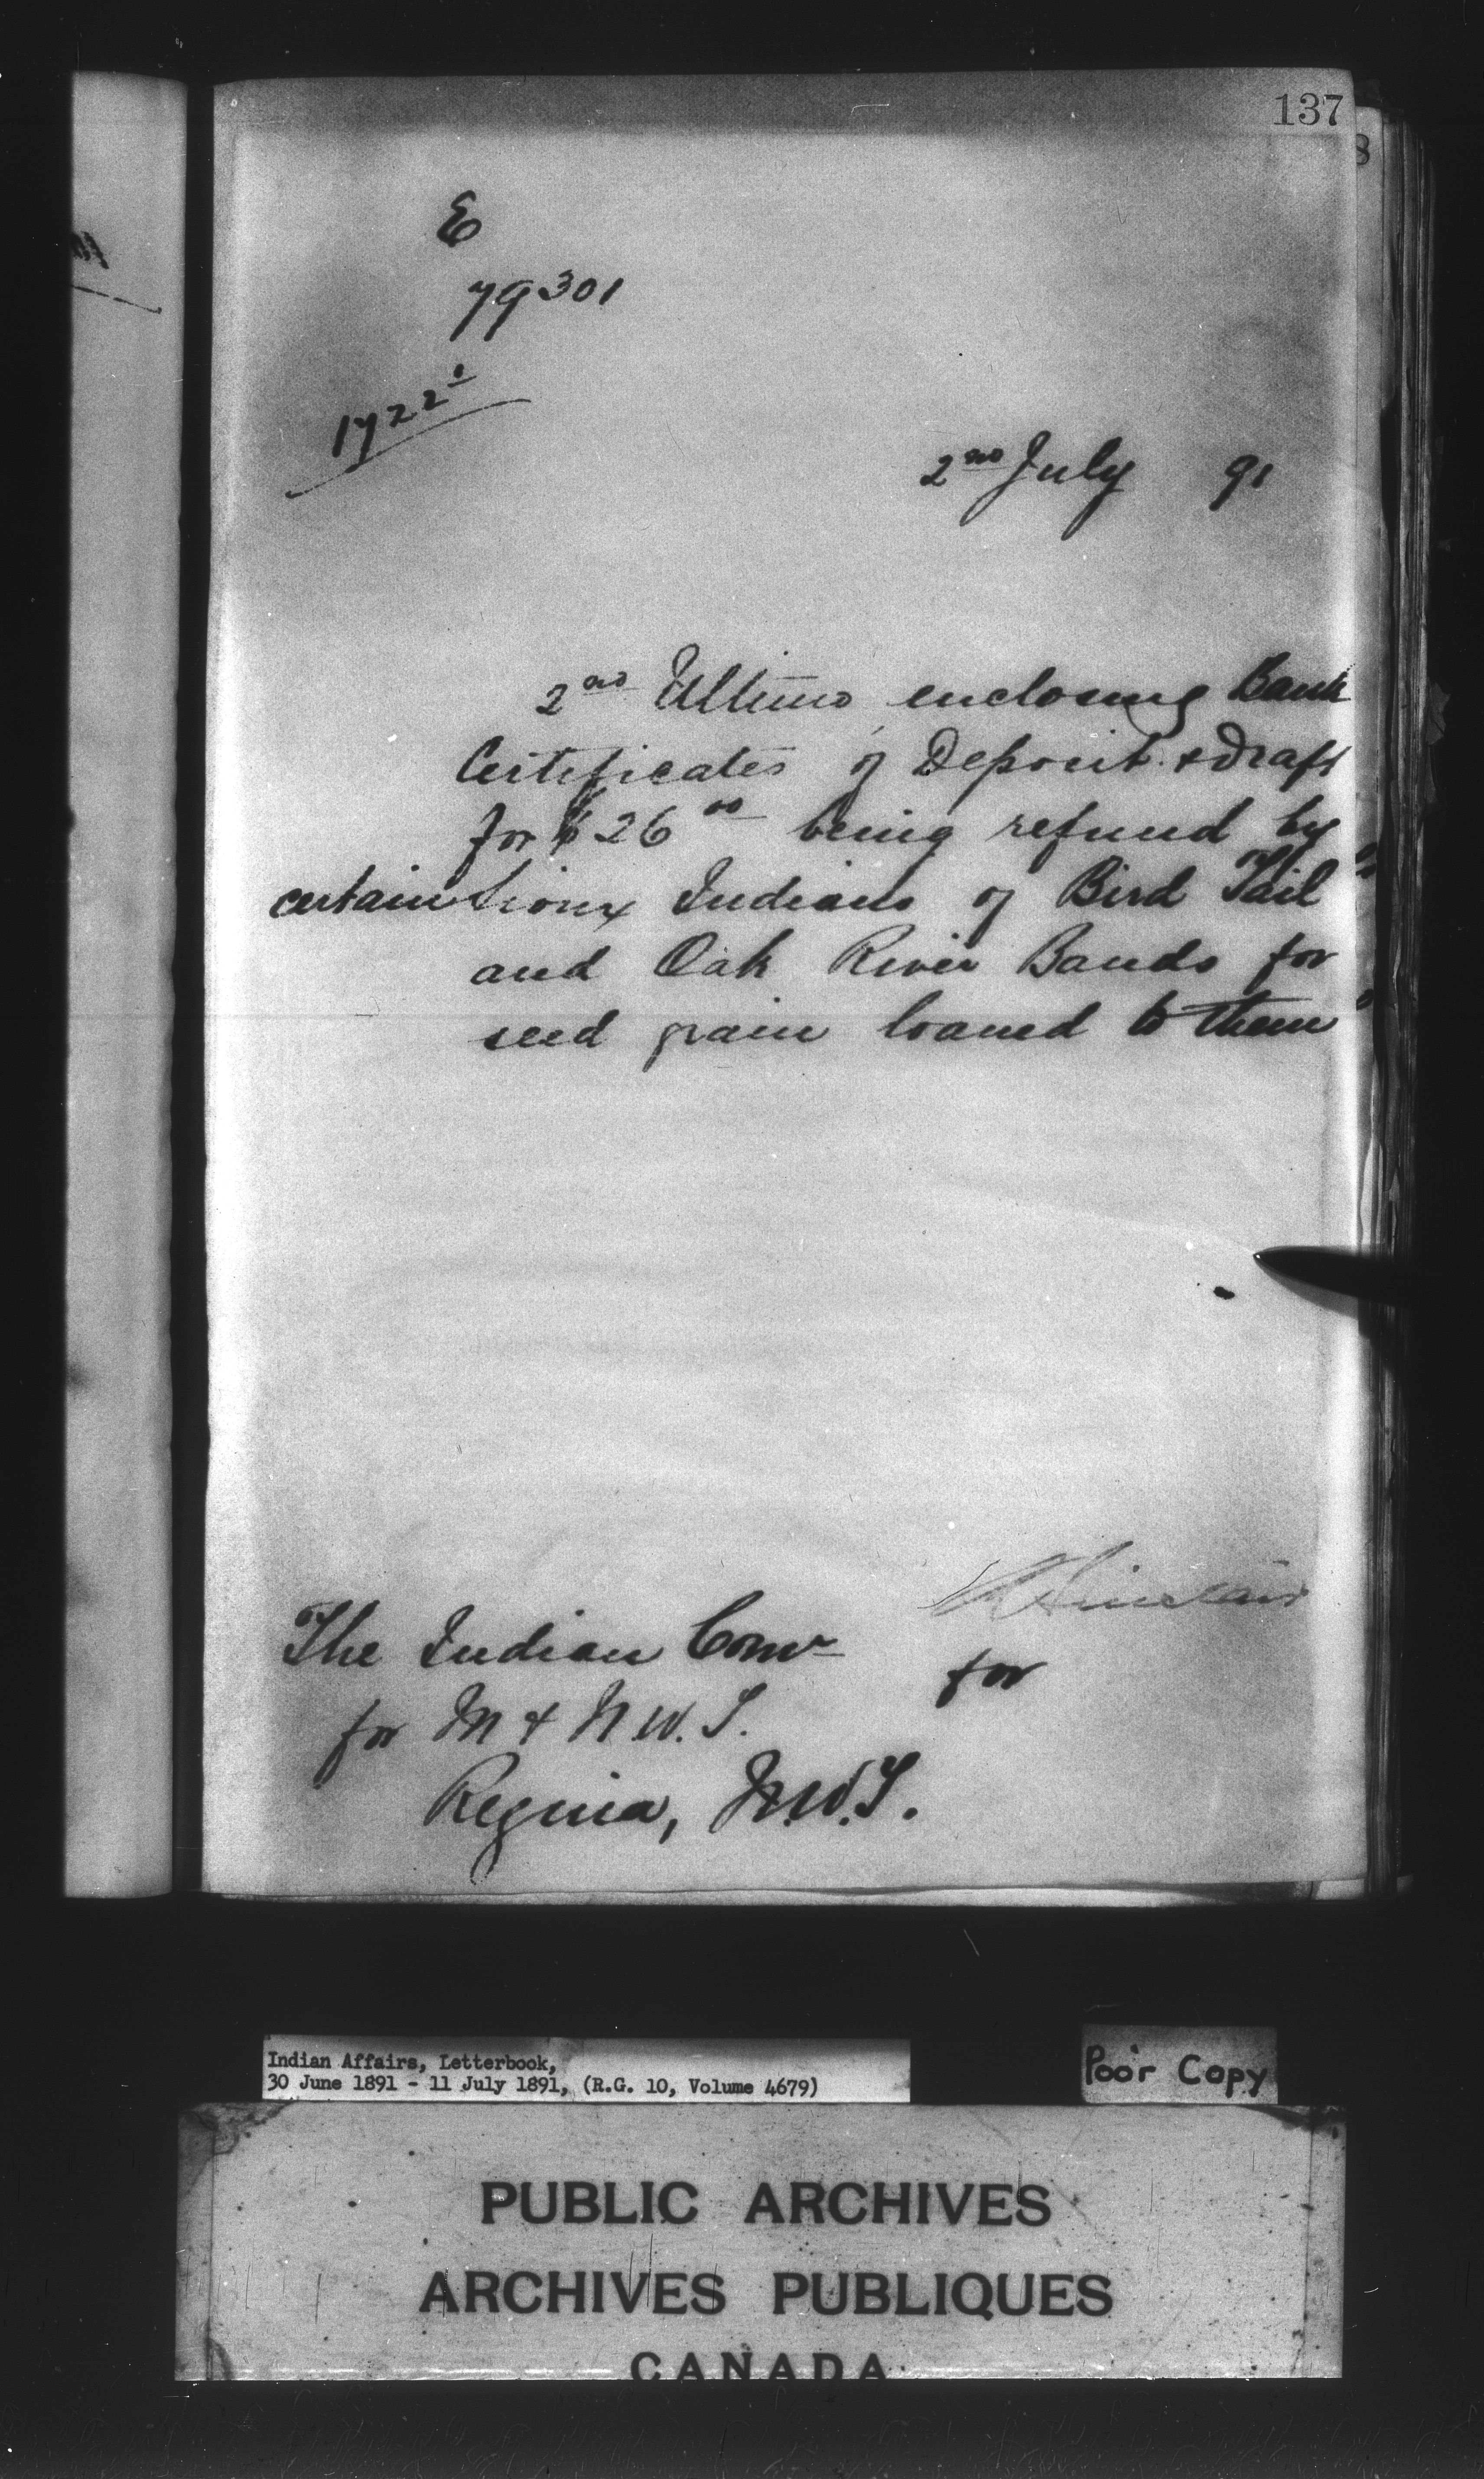 137
E
79301
1722
2nd July 91
2nd Ultimo enclosing Bank
Certificates of Deposit & draft
for $26 00 being refund by
certain Sioux Indians of Bird Tail
and Oak River Bands for
seed grain loaned to them
Sinclair
The Indian Comr
for
for M & N.W.T.
Regina, N.W.T.
Indian Affairs, Letterbook,
30 June 1891 - 11 July 1891, (R.G. 10, Volume 4679)
Poor Copy
PUBLIC ARCHIVES
ARCHIVES PUBLIQUES
CANADA